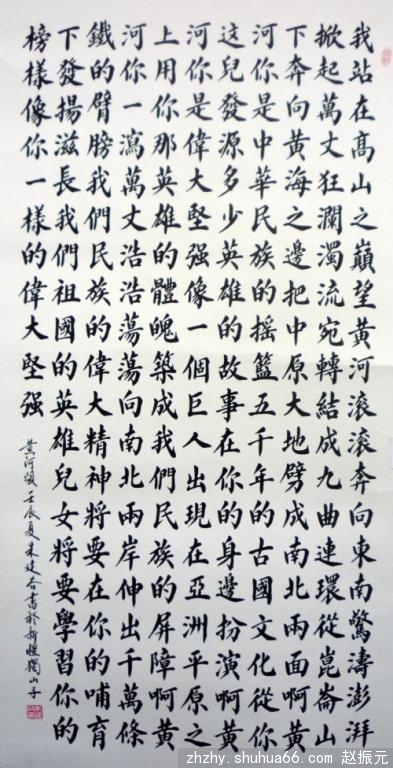 我站在髙山之巔望黃河滾滾奔向東南驚濤澎湃
掀起萬丈狂瀾濁流宛轉結成九曲連環從崑崙山
下奔向黃海之邊把中原大地劈成南北兩面啊黃
河你是中華民族的摇籃五千年的古國文化從你
这兒發源多少英雄的故事在你的身邊扮演啊黃
河你是偉大堅强像一個巨人出現在亞洲平原之
上用你那英雄的體魄築成我們民族的屏障啊黃
河你一瀉萬丈浩浩蕩蕩向南北兩岸伸出千萬條
鐵的臂膀我們民族的偉大精神將要在你的哺育
下發揚滋長我們祖國的英雄兒女將要學習你的
榜樣像你一樣的偉大堅强
黄河頌壬辰夏朱建書於新獨山子
zhzhy.shuhua66.com 赵振元